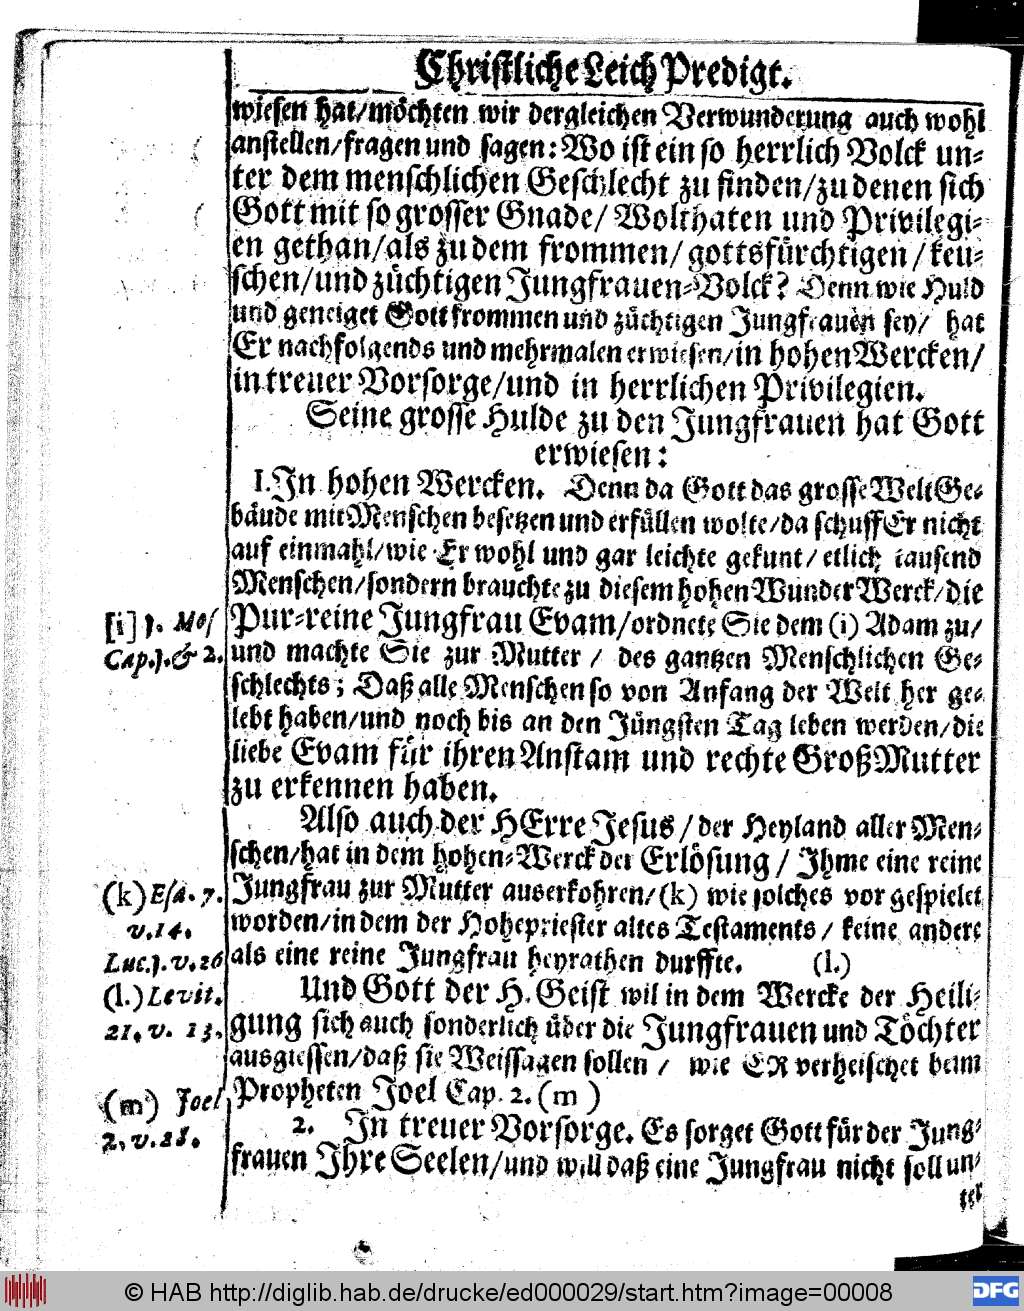 Christliche Leich Predigt.
wiesen hat/möchten wir dergleichen Verwunderung auch wohl
anstellen/fragen und sagen: Wo ist ein so herrlich Volck un-
ter dem menschlichen Geschlecht zu finden/zu denen sich
Gott mit so grosser Gnade/ Wolthaten und Privilegi-
en gethan/als zu dem frommen/ gottsfürchtigen/keu-
schen/und züchtigen Jungfrauen-Volck? Denn wie Huld
und geneiget Gott frommen und züchtigen Jungfrauen sey/ hat
Er nachfolgends und mehrmalen erwiesen/in hohen Wercken/
in treuer Vorsorge/und in herrlichen Privilegien.
Seine grosse Hulde zu den Jungfrauen hat Gott
erwiesen:
I. In hohen Wercken. Denn da Gott das grosse Welt Ge-
bäude mit Menschen besetzen und erfüllen wolte/da schuff Er nicht
auf einmahl/wie Er wohl und gar leichte gekunt/ etlich tausend
Menschen/sondern brauchte zu diesem hohen Wunder Werck/die
Pur-reine Jungfrau Evam/ordnete Sie dem (i) Adam zu/
[i] 1. Mos
Cap.1.& 2.
und machte Sie zur Mutter/ des gantzen Menschlichen Ge-
schlechts; Daß alle Menschen so von Anfang der Welt her ge-
lebt haben/und noch bis an den Jüngsten Tag leben werden/die
liebe Evam für ihren Anstam und rechte Groß Mutter
zu erkennen haben.
Also auch der HErre Jesus/der Heyland aller Men-
schen/hat in dem hohen-Werck der Erlösung/ Ihme eine reine
Jungfrau zur Mutter auserkohren/(k) wie solches vor gespielet
(k) Esa. 7.
v.14.
Luc.1.v.26
worden/in dem der Hohepriester altes Testaments/ keine andere
als eine reine Jungfrau heyrathen durffte. (l.)
(l.) Levit.
21.v. 13.
Und Gott der H. Geist wil in dem Wercke der Heili-
gung sich auch sonderlich über die Jungfrauen und Töchter
ausgiessen/daß sie Weissagen sollen/ wie ER verheischet beim
Propheten Joel Cap. 2. (m)
(m) Joel
2.v.28.
2. In treuer Vorsorge. Es sorget Gott für der Jung-
frauen Ihre Seelen/und will daß eine Jungfrau nicht soll un-
ter
© HAB http://diglib.hab.de/drucke/ed000029/start.htm?image=00008
DFG